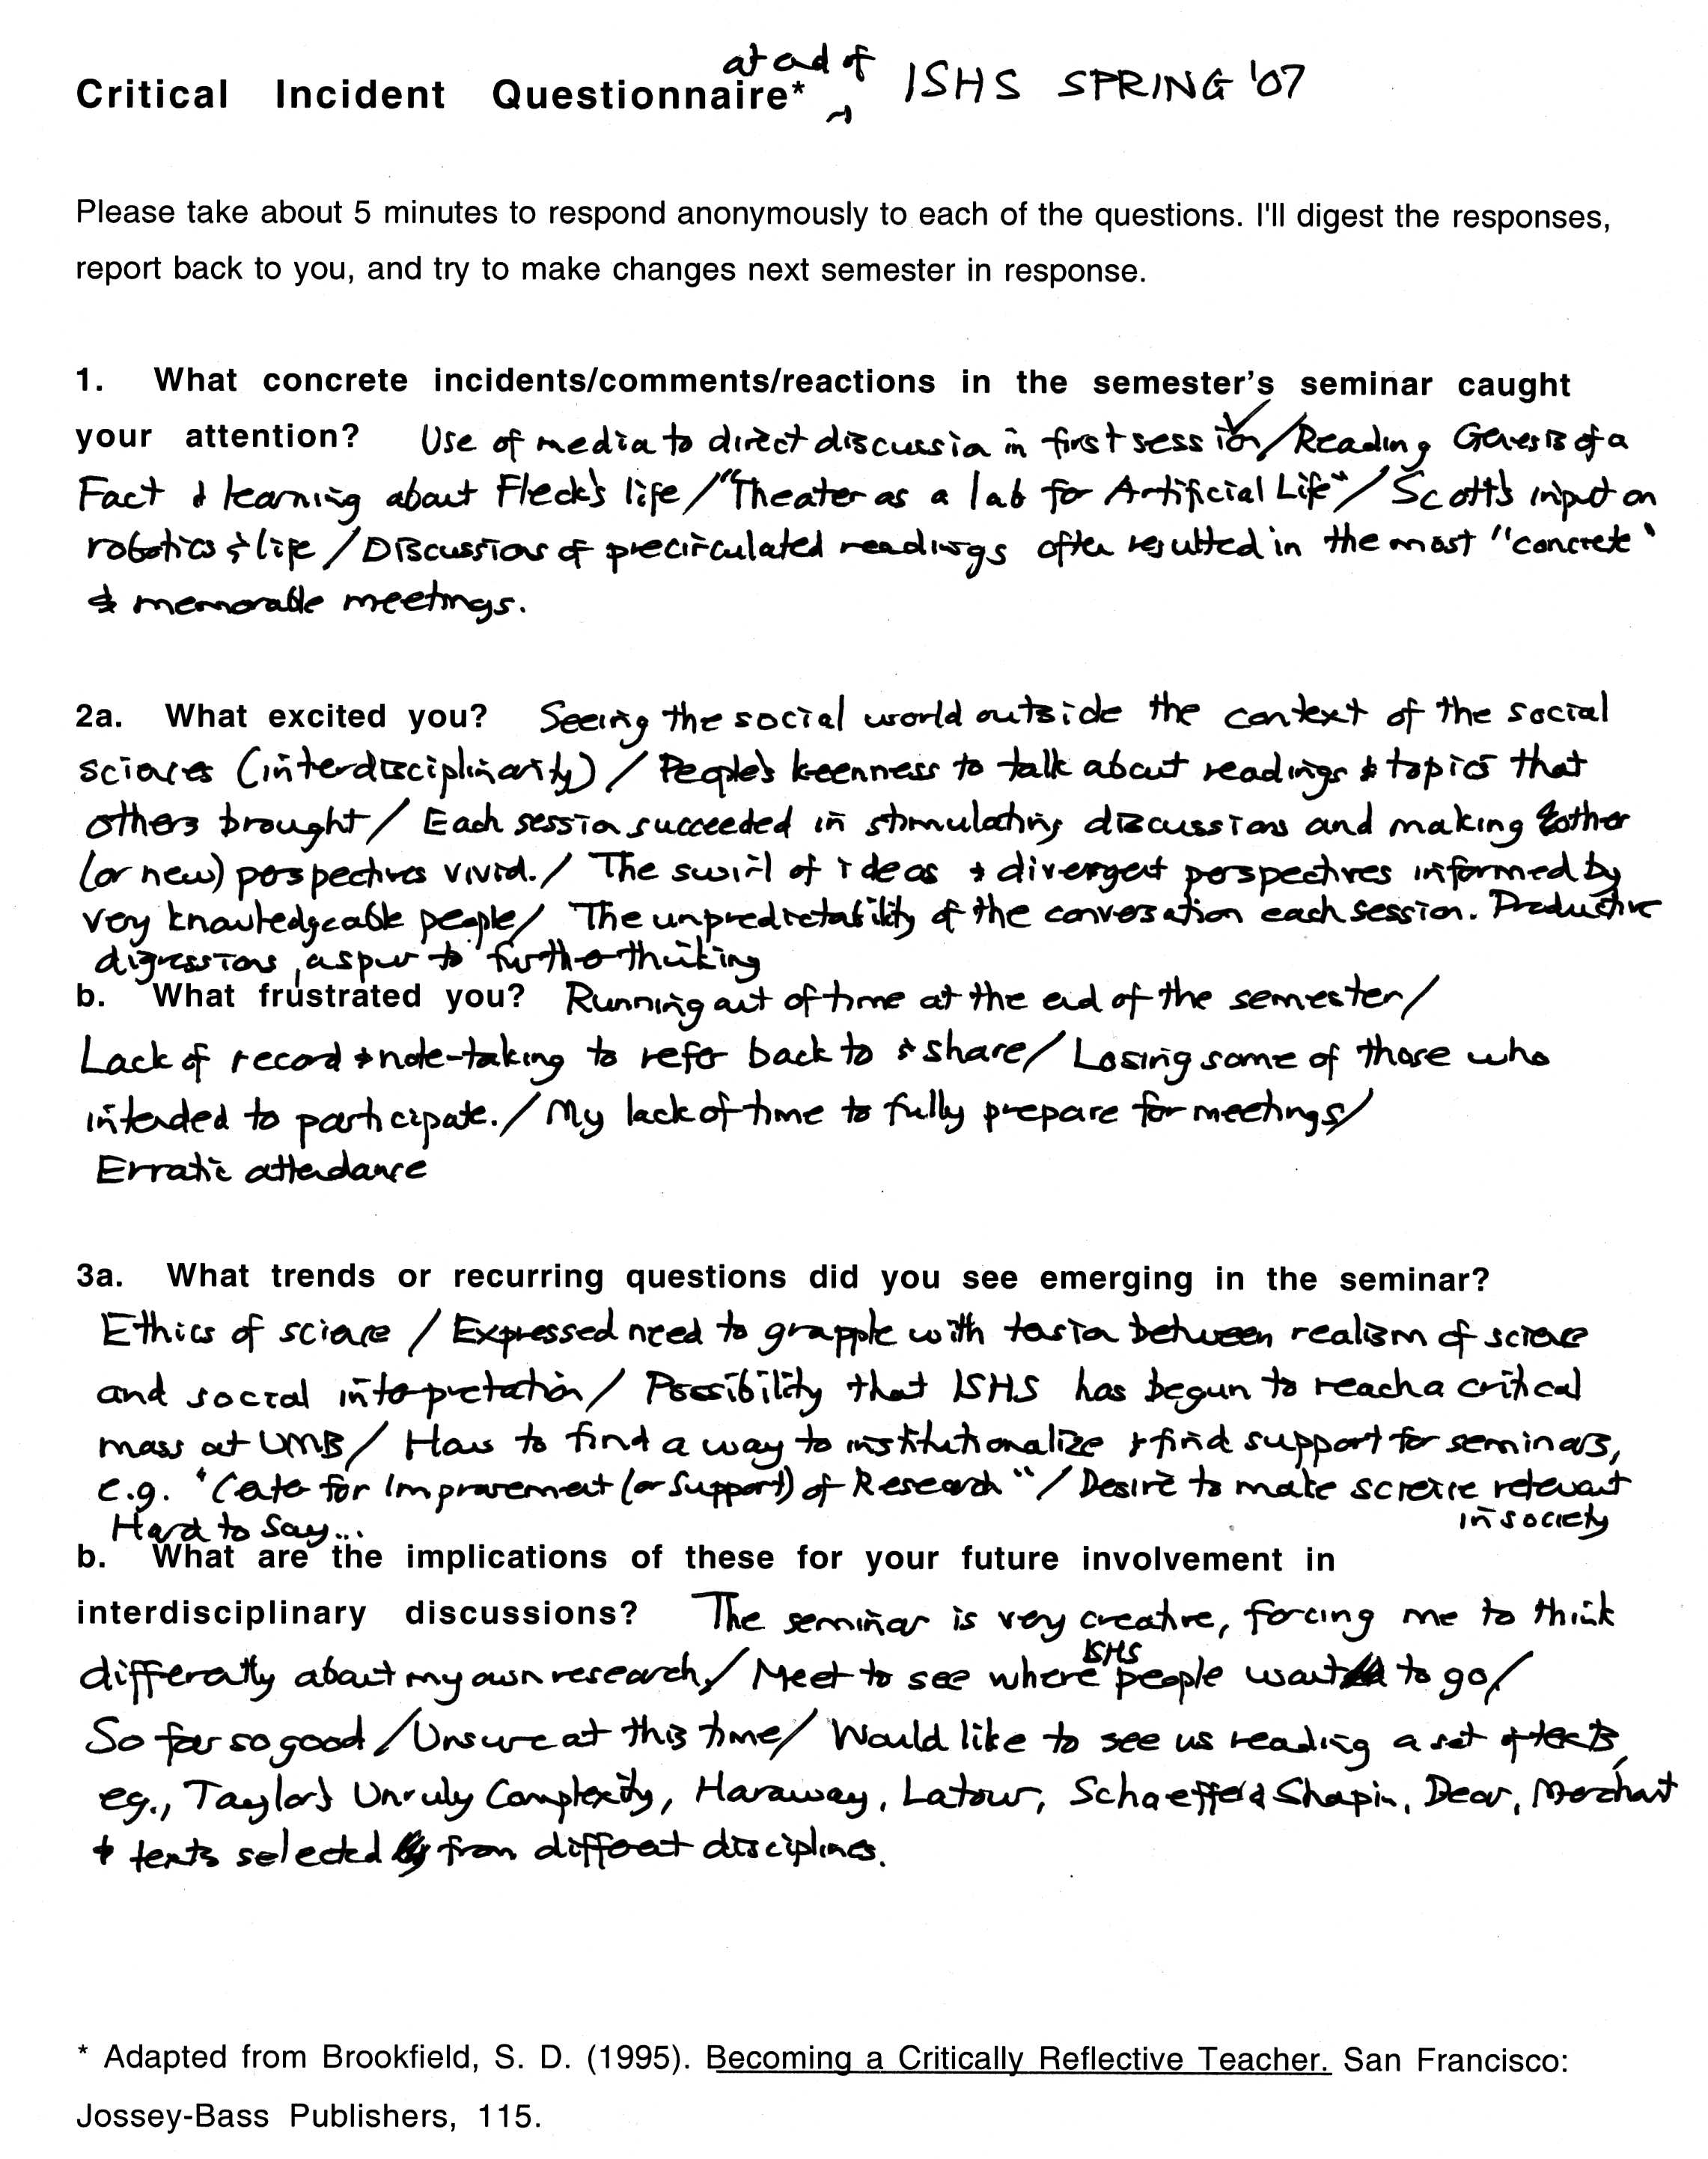 at end of
Critical Incident Questionnaire* ISHS SPRING '07
Please take about 5 minutes to respond anonymously to each of the questions. I'll digest the responses,
report back to you, and try to make changes next semester in response.
1. What concrete incidents/comments/reactions in the semester's seminar caught
your attention? Use of media to direct discussion in first session/Reading Genesis of a
Fact & learning about Fleck's life/"Theater as a lab for Artificial Life"/Scott's input on
robotics & life/Discussions of precirculated readings often resulted in the most "concrete"
& memorable meetings.
2a. What excited you? Seeing the social world outside the context of the social
sciences (interdisciplinarity)/People's keenness to talk about readings & topics that
others brought/Each session succeeded in stimulating discussions and making other
(or new) perspectives vivid./The swirl of ideas & divergent perspectives informed by
very knowledgeable people/The unpredictability of the conversation each session. Productive
digressions, a spur to further thinking
b. What frustrated you? Running out of time at the end of the semester/
Lack of record & note-taking to refer back to & share/Losing some of those who
intended to participate./My lack of time to fully prepare for meetings/
Erratic attendance
3a. What trends or recurring questions did you see emerging in the seminar?
Ethics of science/Expressed need to grapple with tension between realism of science
and social interpretation/Possibility that ISHS has begun to reach a critical
mass at UMB/How to find a way to institutionalize & find support for seminars,
e.g. "Center for Improvement (or Support) of Research"/Desire to make science relevant
in society
Hard to say...
b. What are the implications of these for your future involvement in
interdisciplinary discussions? The seminar is very creative, forcing me to think
differently about my own research./Meet to see where ISHS people want to go/
So far so good/Unsure at this time/Would like to see us reading a set of texts,
eg., Taylor's Unruly Complexity, Haraway, Latour, Schaeffer & Shapin, Dear, Merchant
& texts selected from different disciplines.
* Adapted from Brookfield, S. D. (1995). Becoming a Critically Reflective Teacher. San Francisco:
Jossey-Bass Publishers, 115.